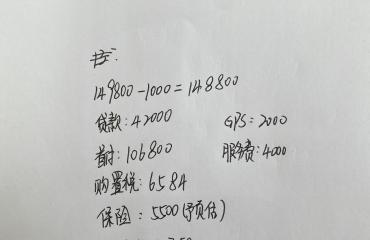 149800-1000=148800
贷款:42000 GPS=2000
首付:106800 服务费:4000
购置税:6584
保险:5500(预估)